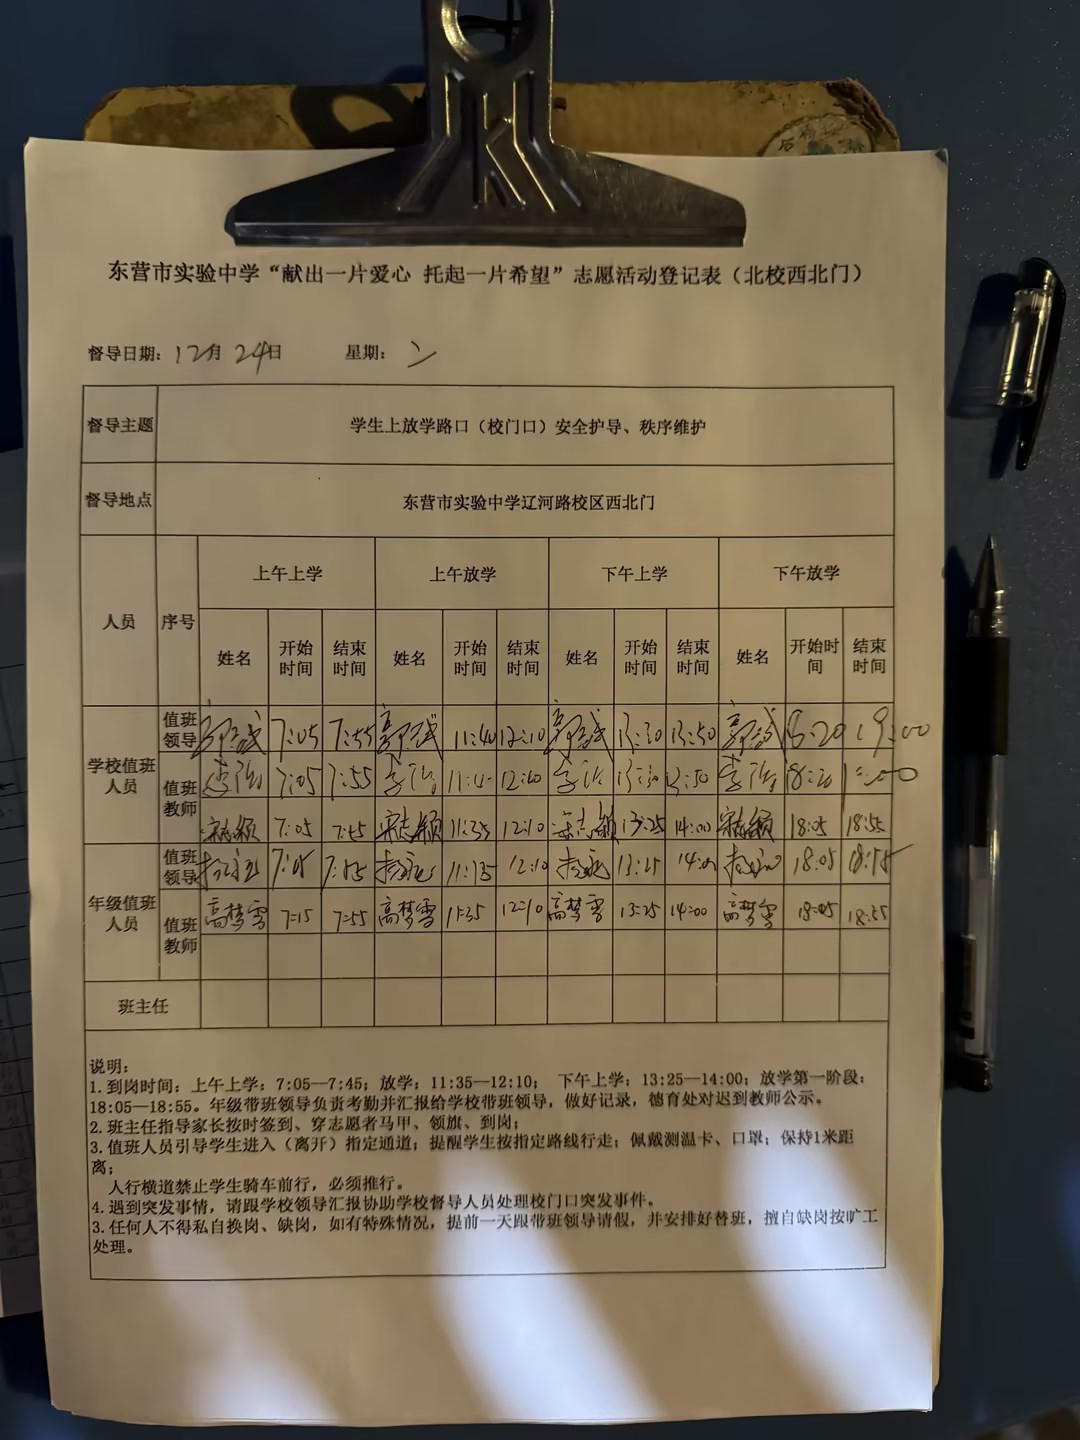 东营市实验中学“献出一片爱心 托起一片希望”志愿活动登记表（北校西北门）
督导日期：12月24日 星期：二
督导主题 学生上放学路口（校门口）安全护导、秩序维护
督导地点 东营市实验中学辽河路校区西北门
人员 序号 上午上学 上午放学 下午上学 下午放学
姓名 开始时间 结束时间 姓名 开始时间 结束时间 姓名 开始时间 结束时间 姓名 开始时间时间 结束时间
学校值班人员 值班领导 7:05 7:55 11:40 12:10 13:30 13:50 18:20 19:00
值班教师 7:05 7:55 11:40 12:10 13:30 13:50 18:20
宋志颖 7:05 7:45 宋志颖 11:35 12:10 宋志颖 13:25 14:00 宋志颖 18:05 18:55
年级值班人员 值班领导 7:05 7:55 11:35 12:10 13:25 14:00 18:05 18:55
值班教师 高梦雪 7:15 7:55 高梦雪 11:35 12:10 高梦雪 13:25 14:00 高梦雪 18:05 18:55
班主任
说明：
1.到岗时间：上午上学：7:05—7:45；放学：11:35—12:10； 下午上学：13:25—14:00；放学第一阶段：
18:05—18:55。年级带班领导负责考勤并汇报给学校带班领导，做好记录，德育处对迟到教师公示。
2.班主任指导家长按时签到、穿志愿者马甲、领旗、到岗；
3.值班人员引导学生进入（离开）指定通道；提醒学生按指定路线行走；佩戴测温卡、口罩；保持1米距
离；
人行横道禁止学生骑车前行，必须推行。
4.遇到突发事情，请跟学校领导汇报协助学校督导人员处理校门口突发事件。
3.任何人不得私自换岗、缺岗，如有特殊情况，提前一天跟带班领导请假，并安排好替班，擅自缺岗按旷工
处理。